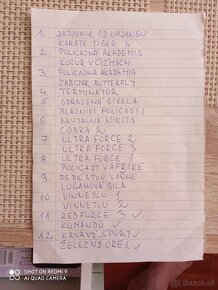 1. BOJOVNÍK OD UMDANGU
KARATE TIGER 3
2 POLICAJNÁ AKADEMIA
KOCUR V ČIŽMÁCH
3. POLICAJNÁ AKADÉMIA
ZABIJAK BUTTERFLY
4 TERMINÁTOR
5 ODRAZENÁ STRELA
BLÁZNIVÍ POLICAJTI
6 BRUTALNA NIKITA
COBRA 2
7 ULTRA FORCE 2
ULTRA FORCE 3
8 ULTRA FORCE 1
POLICAJT V AFRIKE
9 DEDIČSTVO VÁŠNE
LOGANOVA SILA
10 VINNETOU 1
VINNETOU 2
11 RED FORCE 3 ✓
KOMANDO ✓
12. KRVAVÝ ŠPORT ✓
ŽELEZNÝ OREL ✓
SHOT ON REDMI 9
AI QUAD CAMERA
bazos.sk